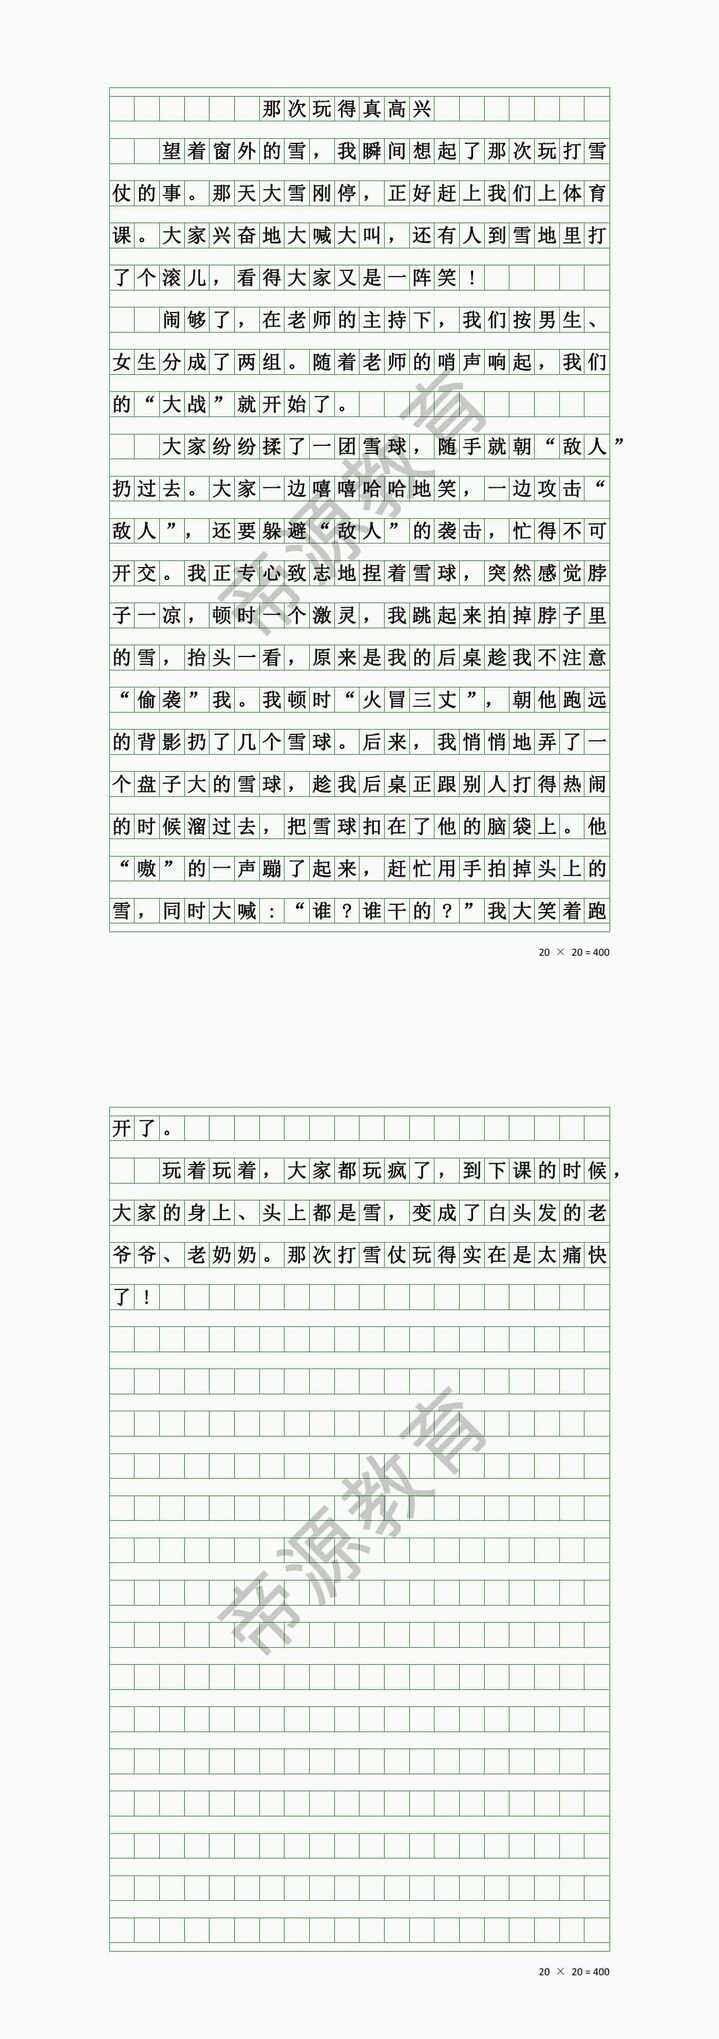 那次玩得真高兴
望着窗外的雪，我瞬间想起了那次玩打雪
仗的事。那天大雪刚停，正好赶上我们上体育
课。大家兴奋地大喊大叫，还有人到雪地里打
了个滚儿，看得大家又是一阵笑！
闹够了，在老师的主持下，我们按男生、
女生分成了两组。随着老师的哨声响起，我们
的“大战”就开始了。
大家纷纷揉了一团雪球，随手就朝“敌人”
扔过去。大家一边嘻嘻哈哈地笑，一边攻击“
敌人”，还要躲避“敌人”的袭击，忙得不可
开交。我正专心致志地捏着雪球，突然感觉脖
子一凉，顿时一个激灵，我跳起来拍掉脖子里
的雪，抬头一看，原来是我的后桌趁我不注意
“偷袭”我。我顿时“火冒三丈”，朝他跑远
的背影扔了几个雪球。后来，我悄悄地弄了一
个盘子大的雪球，趁我后桌正跟别人打得热闹
的时候溜过去，把雪球扣在了他的脑袋上。他
“嗷”的一声蹦了起来，赶忙用手拍掉头上的
雪，同时大喊：“谁？谁干的？”我大笑着跑
20 × 20 = 400
开了。
玩着玩着，大家都玩疯了，到下课的时候，
大家的身上、头上都是雪，变成了白头发的老
爷爷、老奶奶。那次打雪仗玩得实在是太痛快
了！
20 × 20 = 400
帝源教育
帝源教育